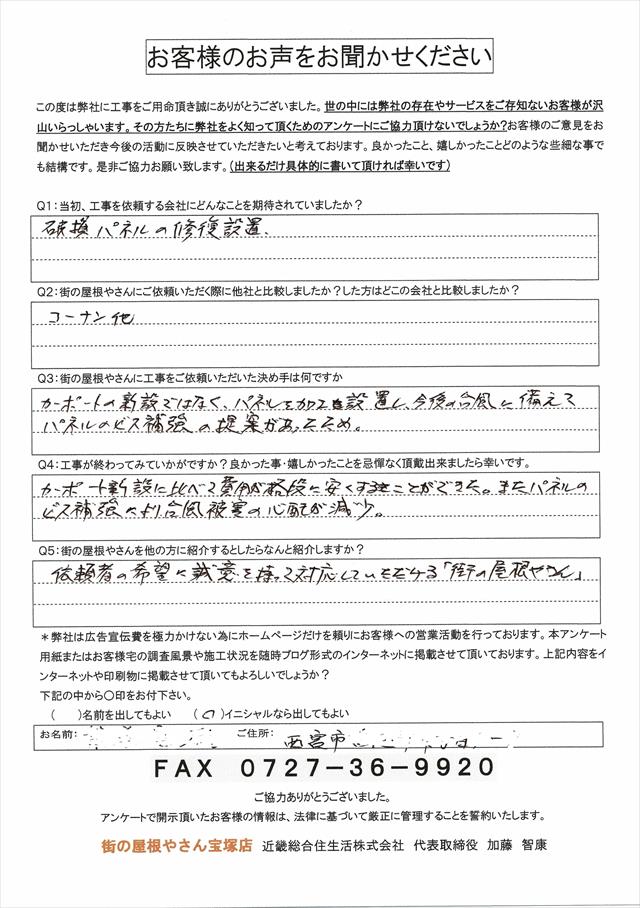 お客様のお声をお聞かせください
この度は弊社に工事をご用命頂き誠にありがとうございました。世の中には弊社の存在やサービスをご存知ないお客様が沢
山いらっしゃいます。その方たちに弊社をよく知って頂くためのアンケートにご協力頂けないでしょうか?お客様のご意見をお
聞かせいただき今後の活動に反映させていただきたいと考えております。良かったこと、嬉しかったことどのような些細な事で
も結構です。是非ご協力お願い致します。(出来るだけ具体的に書いて頂ければ幸いです)
Q1:当初、工事を依頼する会社にどんなことを期待されていましたか?
破損パネルの修復設置、
Q2:街の屋根やさんにご依頼いただく際に他社と比較しましたか?した方はどこの会社と比較しましたか?
コーナン他
Q3:街の屋根やさんに工事をご依頼いただいた決め手は何ですか
カーポートの新設ではなく、パネルを加工設置し、今後の台風に備えて
パネルのビス補強の提案があったため。
Q4:工事が終わってみていかがですか?良かった事・嬉しかったことを忌憚なく頂戴出来ましたら幸いです。
カーポート新設に比べて費用が格段に安くすることができた。またパネルの
ビス補強により台風被害の心配が減少。
Q5:街の屋根やさんを他の方に紹介するとしたらなんと紹介しますか?
依頼者の希望に誠意を持って対応していただける「街の屋根やさん」
*弊社は広告宣伝費を極力かけない為にホームページだけを頼りにお客様への営業活動を行っております。本アンケート
用紙またはお客様宅の調査風景や施工状況を随時ブログ形式のインターネットに掲載させて頂いております。上記内容をイ
ンターネットや印刷物に掲載させて頂いてもよろしいでしょうか?
下記の中から〇印をお付下さい。
( )名前を出してもよい (〇)イニシャルなら出してもよい
お名前: ご住所: 西宮市
FAX 0727-36-9920
ご協力ありがとうございました。
アンケートで開示頂いたお客様の情報は、法律に基づいて厳正に管理することを誓約いたします。
街の屋根やさん宝塚店 近畿総合住生活株式会社 代表取締役 加藤 智康